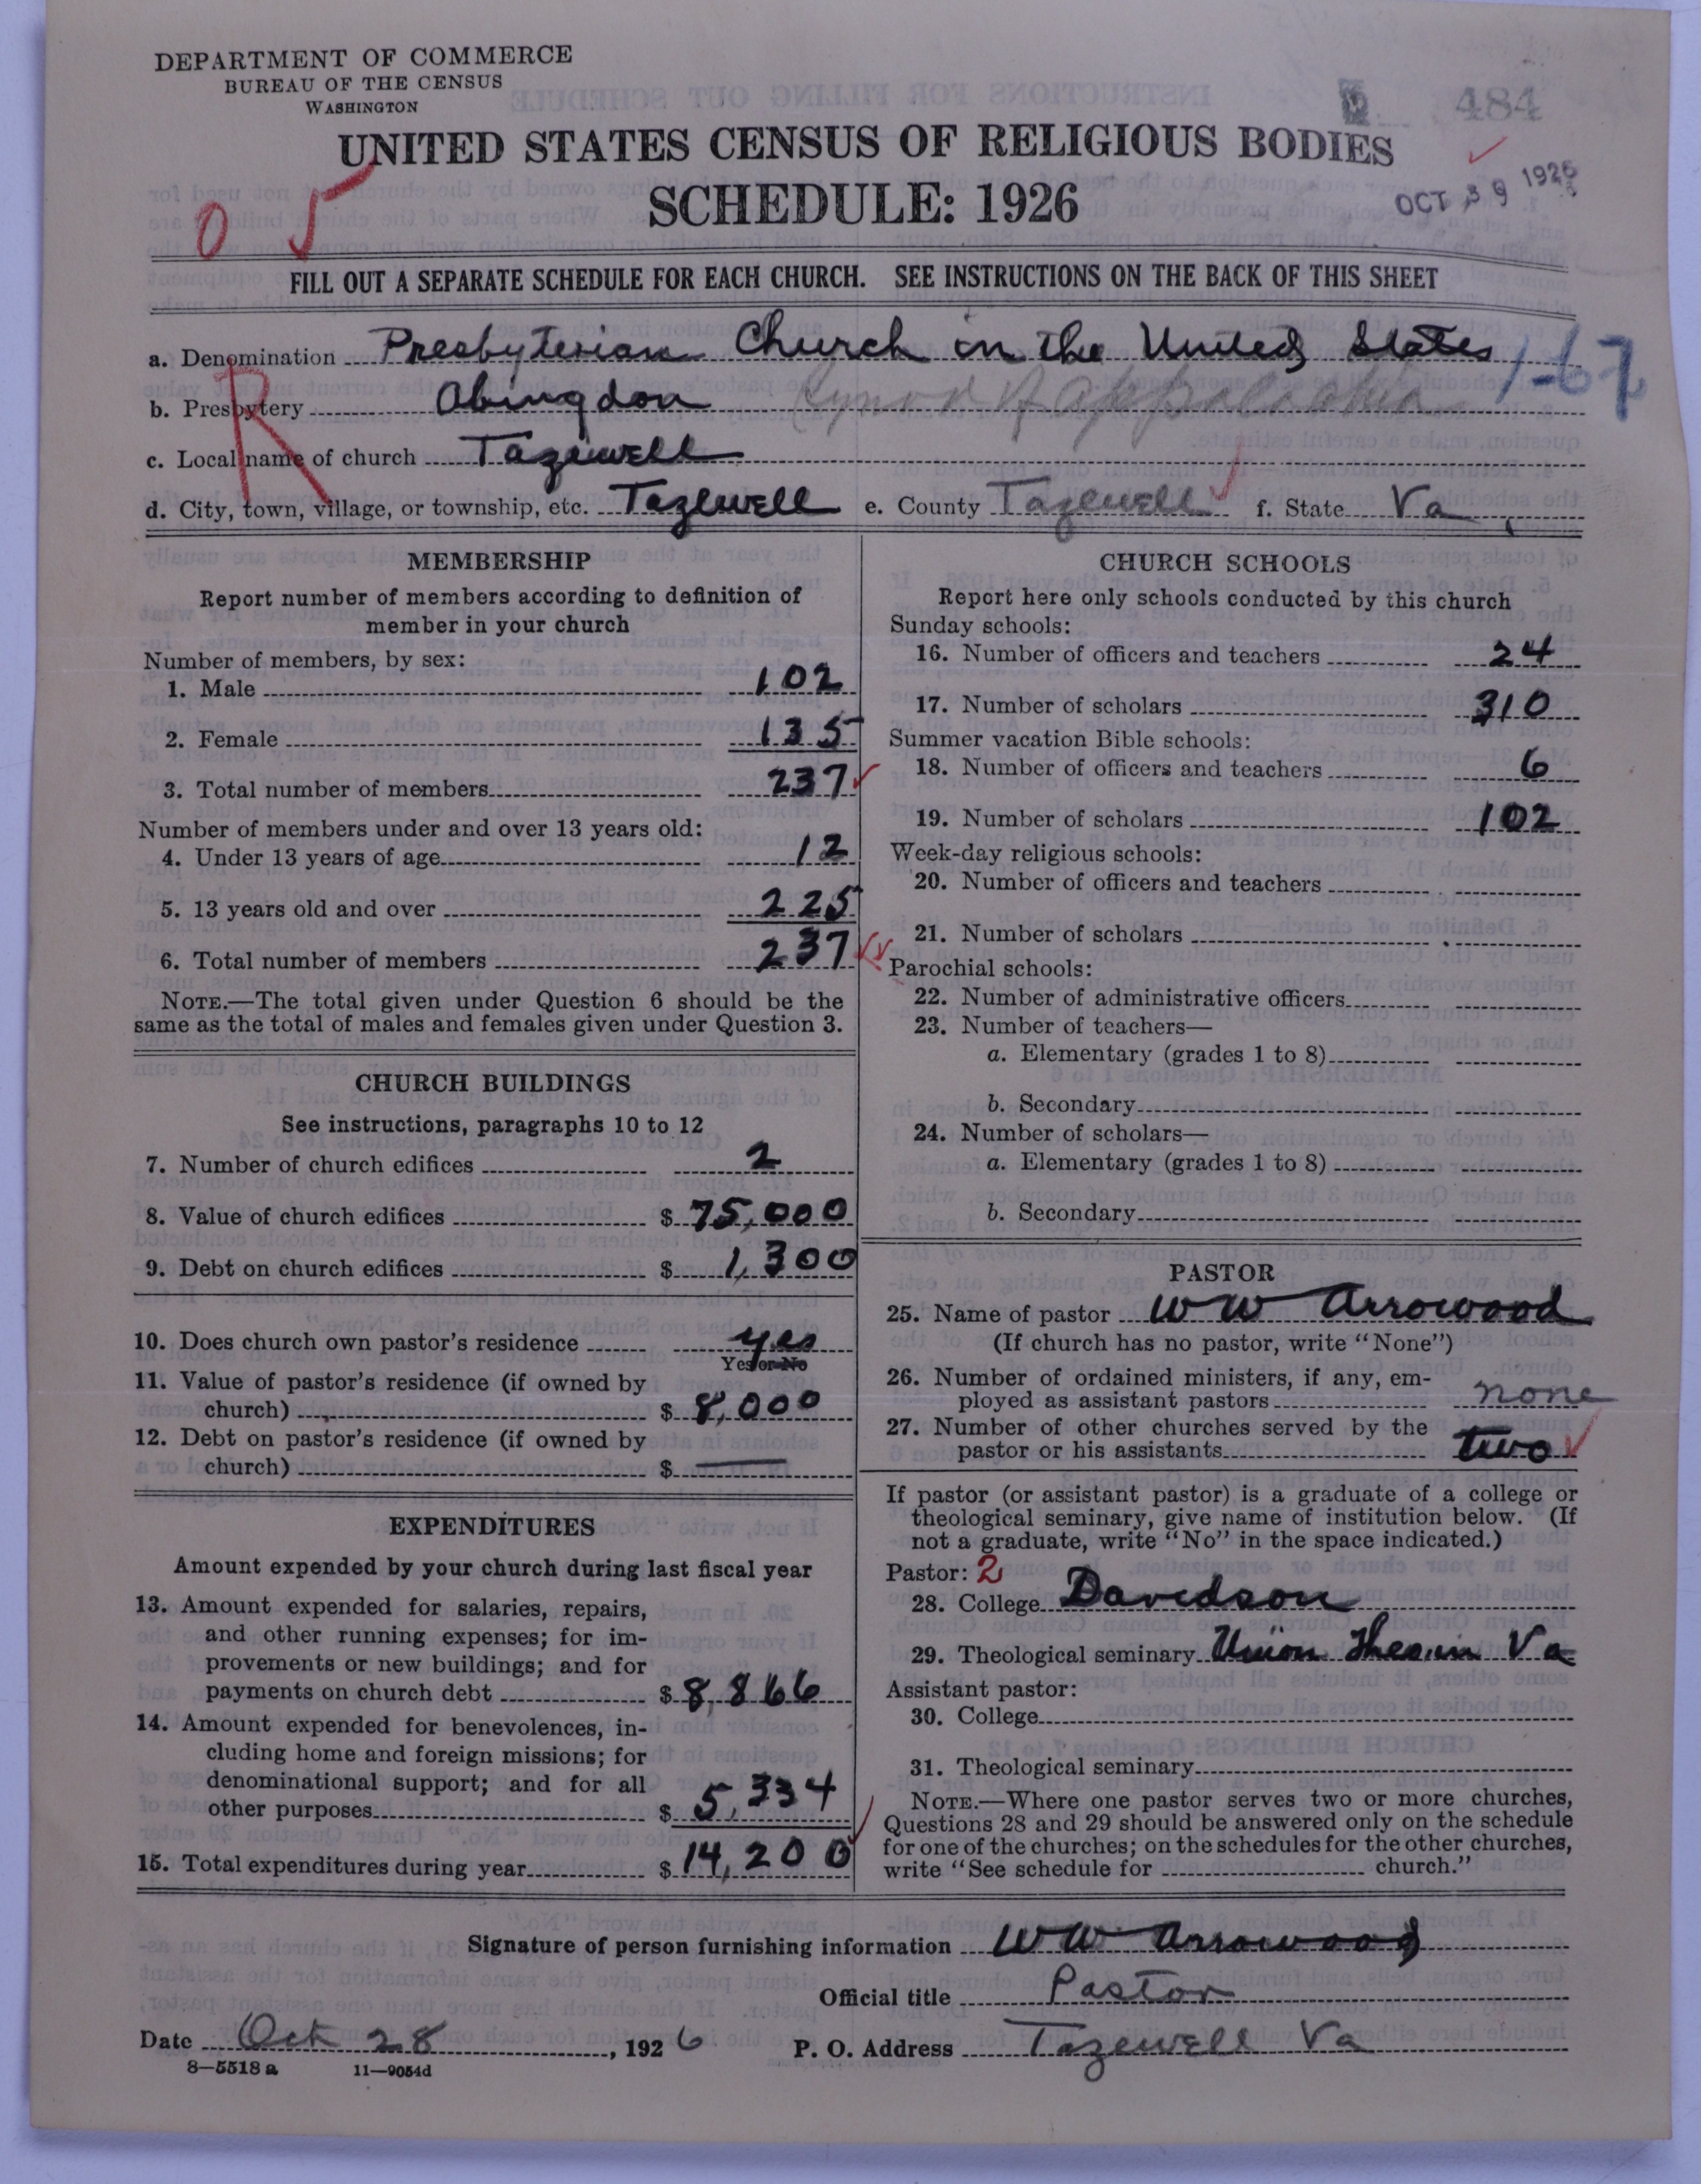 DEPARTMENT OF COMMERCE
BUREAU OF THE CENSUS
WASHINGTON
484
UNITED STATES CENSUS OF RELIGIOUS BODIES
SCHEDULE: 1926
OCT 1926
0 5
FILL OUT A SEPARATE SCHEDULE FOR EACH CHURCH. SEE INSTRUCTIONS ON THE BACK OF THIS SHEET
a. Denomination Presbyterian Church in the United States 1-67
b. Presbytery Abingdon Synod of Appalachia
R
c. Local name of church Tazewell
d. City, town, village, or township, etc. Tazewell e. County Tazewell f. State Va
MEMBERSHIP
Report number of members according to definition of
member in your church
Number of members, by sex:
1. Male 102
2. Female 135
3. Total number of members 237
Number of members under and over 13 years old:
4. Under 13 years of age 12
5. 13 years old and over 225
6. Total number of members 237
NOTE.—The total given under Question 6 should be the
same as the total of males and females given under Question 3.
CHURCH BUILDINGS
See instructions, paragraphs 10 to 12
7. Number of church edifices 2
8. Value of church edifices $ 75,000
9. Debt on church edifices $ 1,300
10. Does church own pastor's residence yes
Yes or No
11. Value of pastor's residence (if owned by
church) $ 8,000
12. Debt on pastor's residence (if owned by
church) $ —
EXPENDITURES
Amount expended by your church during last fiscal year
13. Amount expended for salaries, repairs,
and other running expenses; for im-
provements or new buildings; and for
payments on church debt $ 8,866
14. Amount expended for benevolences, in-
cluding home and foreign missions; for
denominational support; and for all
other purposes $ 5,334
15. Total expenditures during year $ 14,200
CHURCH SCHOOLS
Report here only schools conducted by this church
Sunday schools:
16. Number of officers and teachers 24
17. Number of scholars 310
Summer vacation Bible schools:
18. Number of officers and teachers 6
19. Number of scholars 102
Week-day religious schools:
20. Number of officers and teachers
21. Number of scholars
Parochial schools:
22. Number of administrative officers
23. Number of teachers—
a. Elementary (grades 1 to 8)
b. Secondary
24. Number of scholars—
a. Elementary (grades 1 to 8)
b. Secondary
PASTOR
25. Name of pastor W W Arrowood
(If church has no pastor, write "None")
26. Number of ordained ministers, if any, em-
ployed as assistant pastors none
27. Number of other churches served by the
pastor or his assistants two
If pastor (or assistant pastor) is a graduate of a college or
theological seminary, give name of institution below. (If
not a graduate, write "No" in the space indicated.)
Pastor: 2
28. College Davidson
29. Theological seminary Union Va
Assistant pastor:
30. College
31. Theological seminary
NOTE.—Where one pastor serves two or more churches,
Questions 28 and 29 should be answered only on the schedule
for one of the churches; on the schedules for the other churches,
write "See schedule for church."
Signature of person furnishing information W W Arrowood
Official title Pastor
Date Oct 28, 1926 P. O. Address Tazewell Va
8—5518 a 11—9054d